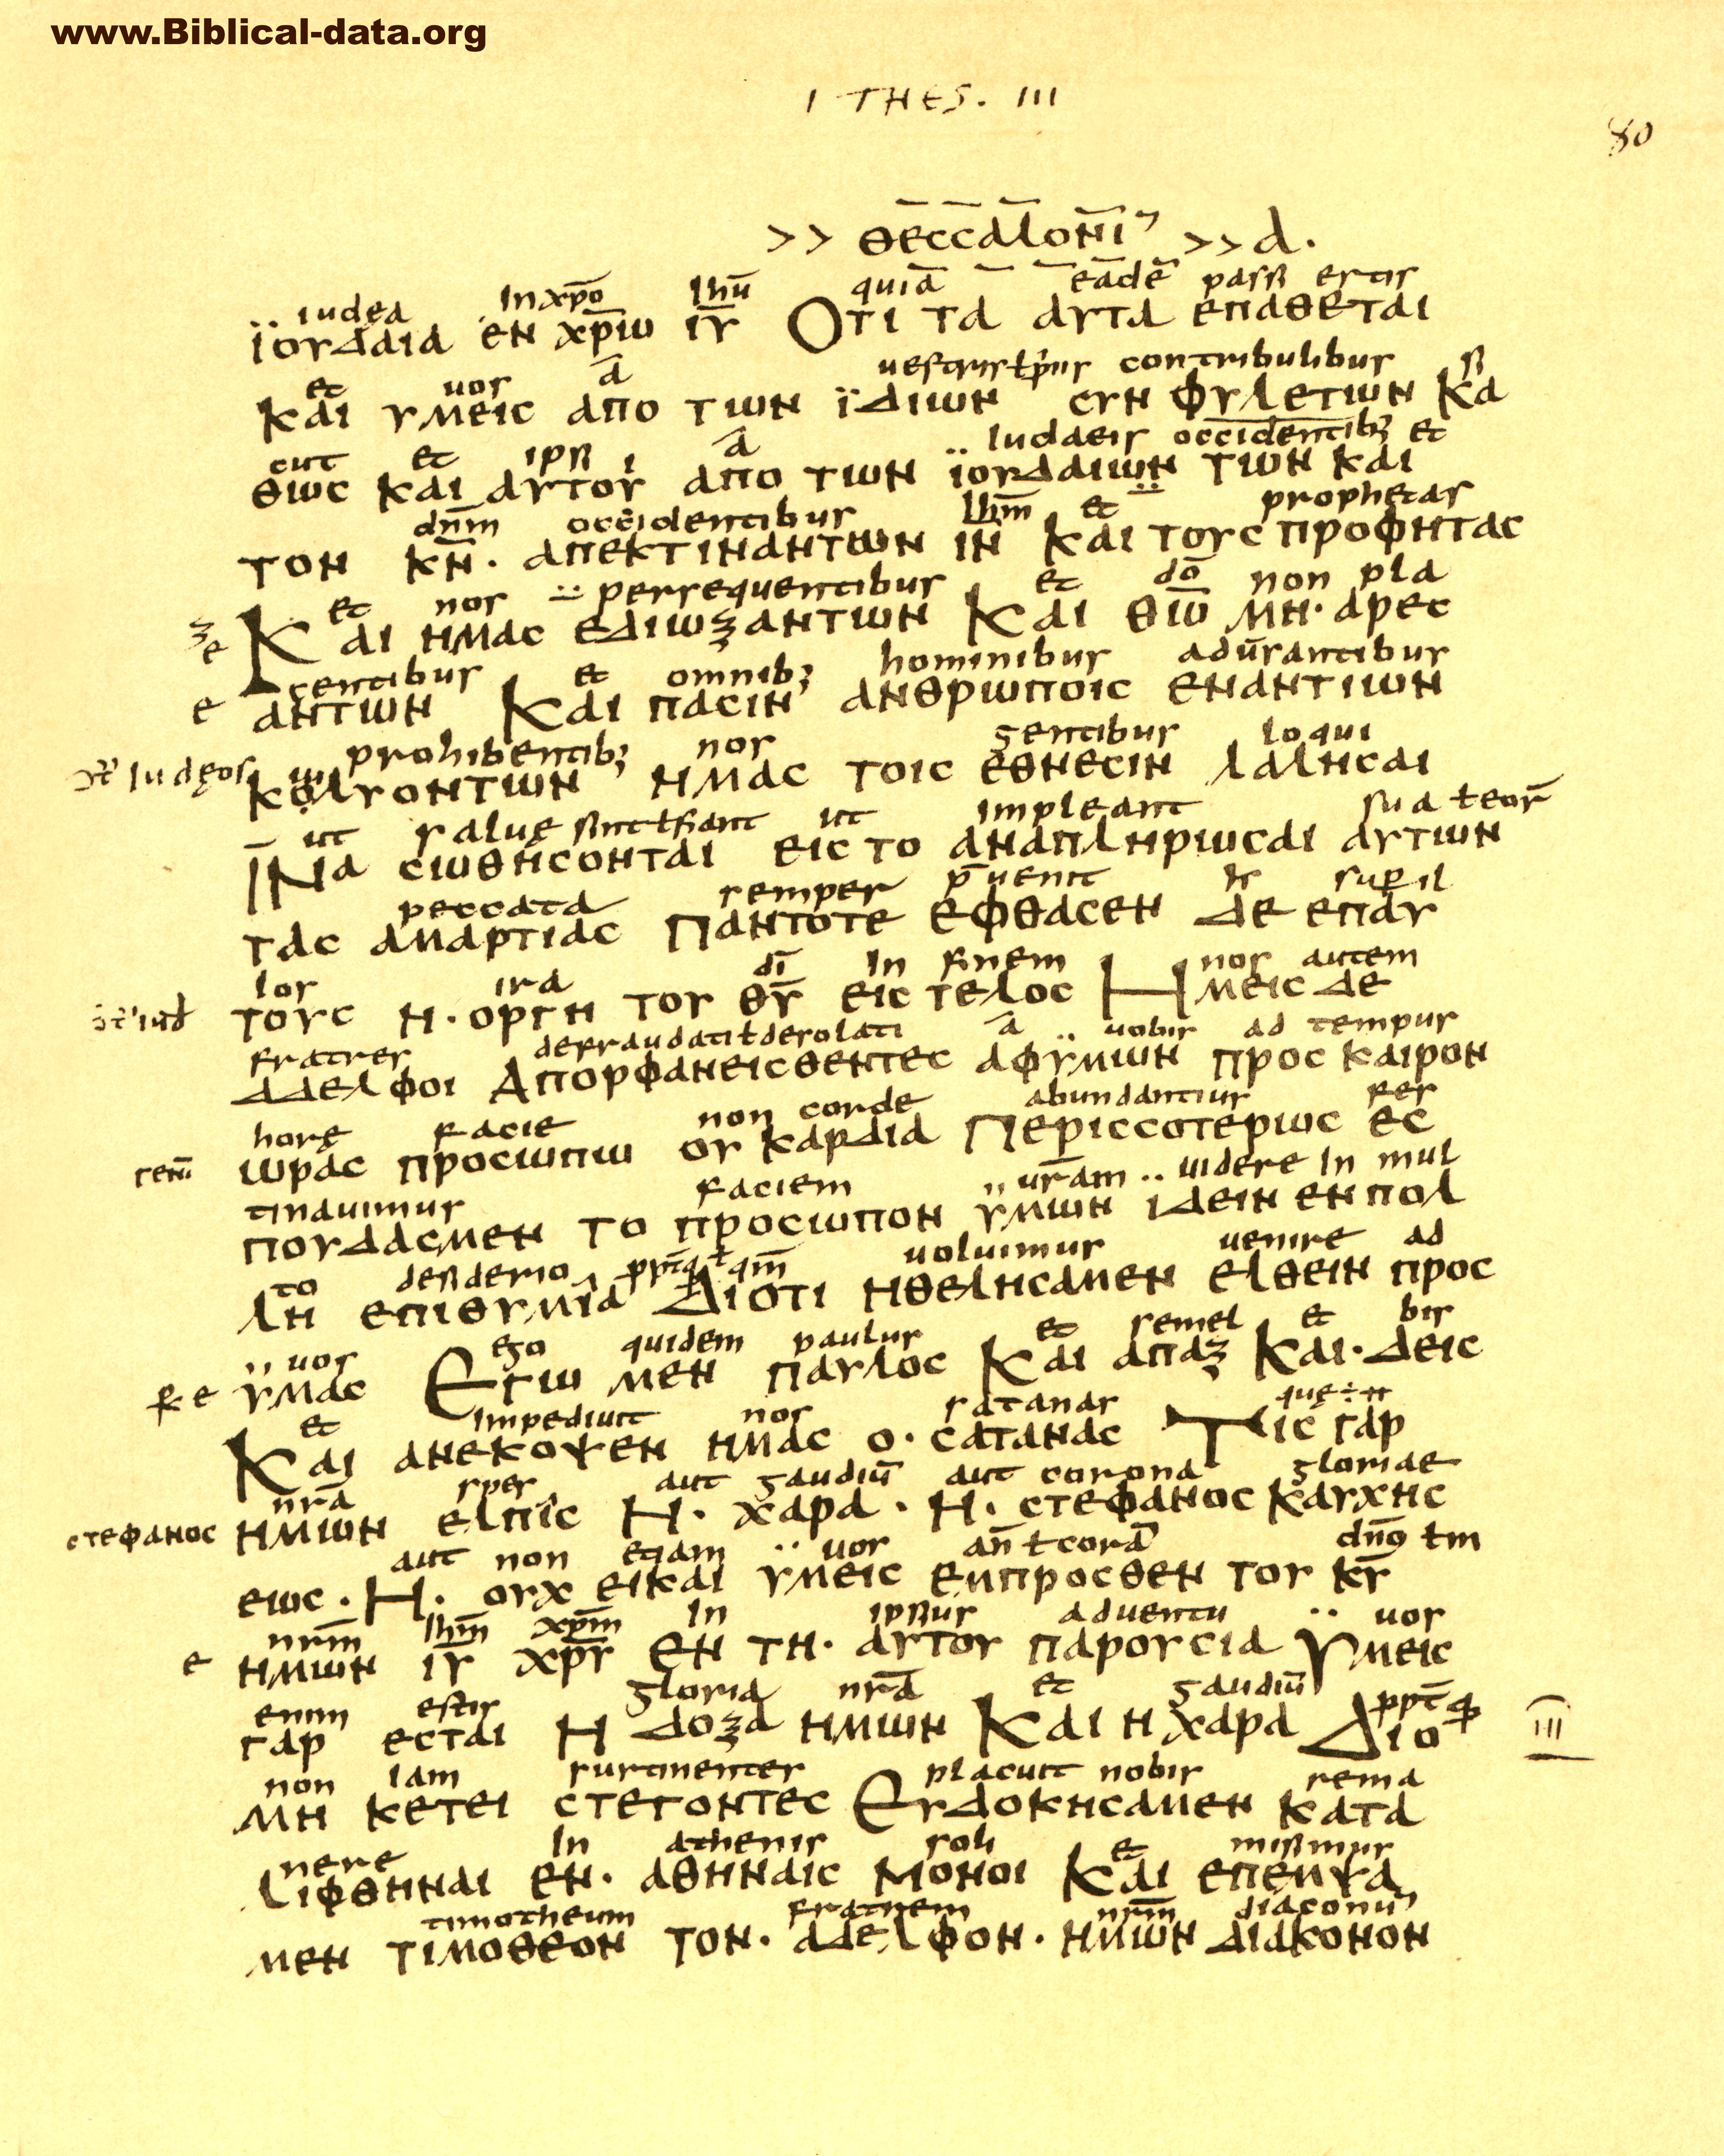 www.Biblical-data.org
I THES. III
80
>> θεccαλοnι >> d.
iudea Inxp̄o Ih̄u quia eade passi estis
ϊουδαια εν χρ̄ιω ιῡ Οτι τα αυτα επαθεται
et uos a contribulibus
και υμεις απο των ϊδιων συν φυλετων κα
cut et ipsi a Iudaeis occidentib; et
θως και αυτου απο των ϊουδαιων των και
dn̄m occidentibus Ihm̄ et prophetas
τον κ̄ν̄. απεκτιναντων ῑν̄ και τους προφητας
et nos persequentibus et dō non pla
Και ημας εδιωξαντων Και θ̄ω̄ μη. αρες
centibus et omnib; hominibus aduersantibus
αντων Και πασιν ανθρωποις εναντιων
Iudeos prohibentib; nos gentibus loqui
κολυοντων ημας τοις εθνεσιν λαλησαι
ut saluę ut impleant sua
Ινα σωθησονται εις το αναπληρωσαι αυτων
peccata semper p̄uenit sup il
τας αμαρτιας Παντοτε εφθασεν δε επαυ
los ira dī In finem nos autem
τους η. οργη του θῡ εις τελος Ημεις δε
fratres a uobis ad tempus
αδελφοι Απορφανεισθεντες αφυμων προς καιρον
horę facie non corde abundantius fes
ωρας προσωπω ου καρδια Περισσοτερως εσ
tinauimus faciem ur̄am uidere In mul
πουδασμεν το προσωπον υμων ιδειν εν πολ
to desiderio uoluimus uenire ad
λη επιθυμια Διοτι ηθελησαμεν ελθειν προς
uos ego quidem paulus et semel et bis
υμας Εγω μεν παυλος Και απαξ Και. δεις
et impediuit nos satanas
Και ανεκοψεν ημας ο. σατανας Τις γαρ
nr̄a spes aut gaudiū aut corona gloriae
στεφανος ημων ελπις Η. χαρα. Η. στεφανος καυχης
aut non uos dn̄o
εως. Η. ουχ εικαι υμεις εμπροσθεν του κ̄ῡ
nrm̄ Ihm̄ xpm̄ In ipsius aduentu uos
ημων ῑῡ χρ̄ῡ εν τη. αυτου παρουσια Υμεις
enim estis gloria nr̄a et gaudiū
γαρ εσται Η δοξα ημων Και η χαρα Διο
III
non Iam sustinentes placuit nobis rema
μη κετει στεγοντες Ευδοκησαμεν κατα
nere In athenis soli et misimus
λιφθηναι εν. αθηναις Μονοι Και επεμψα
timotheum fratrem nrm̄ diaconū
μεν τιμοθεον τον. αδελφον. ημων διακονον